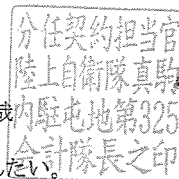 分任契約担当官
陸上自衛隊真駒
内駐屯地第325
会計隊長之印
したい。